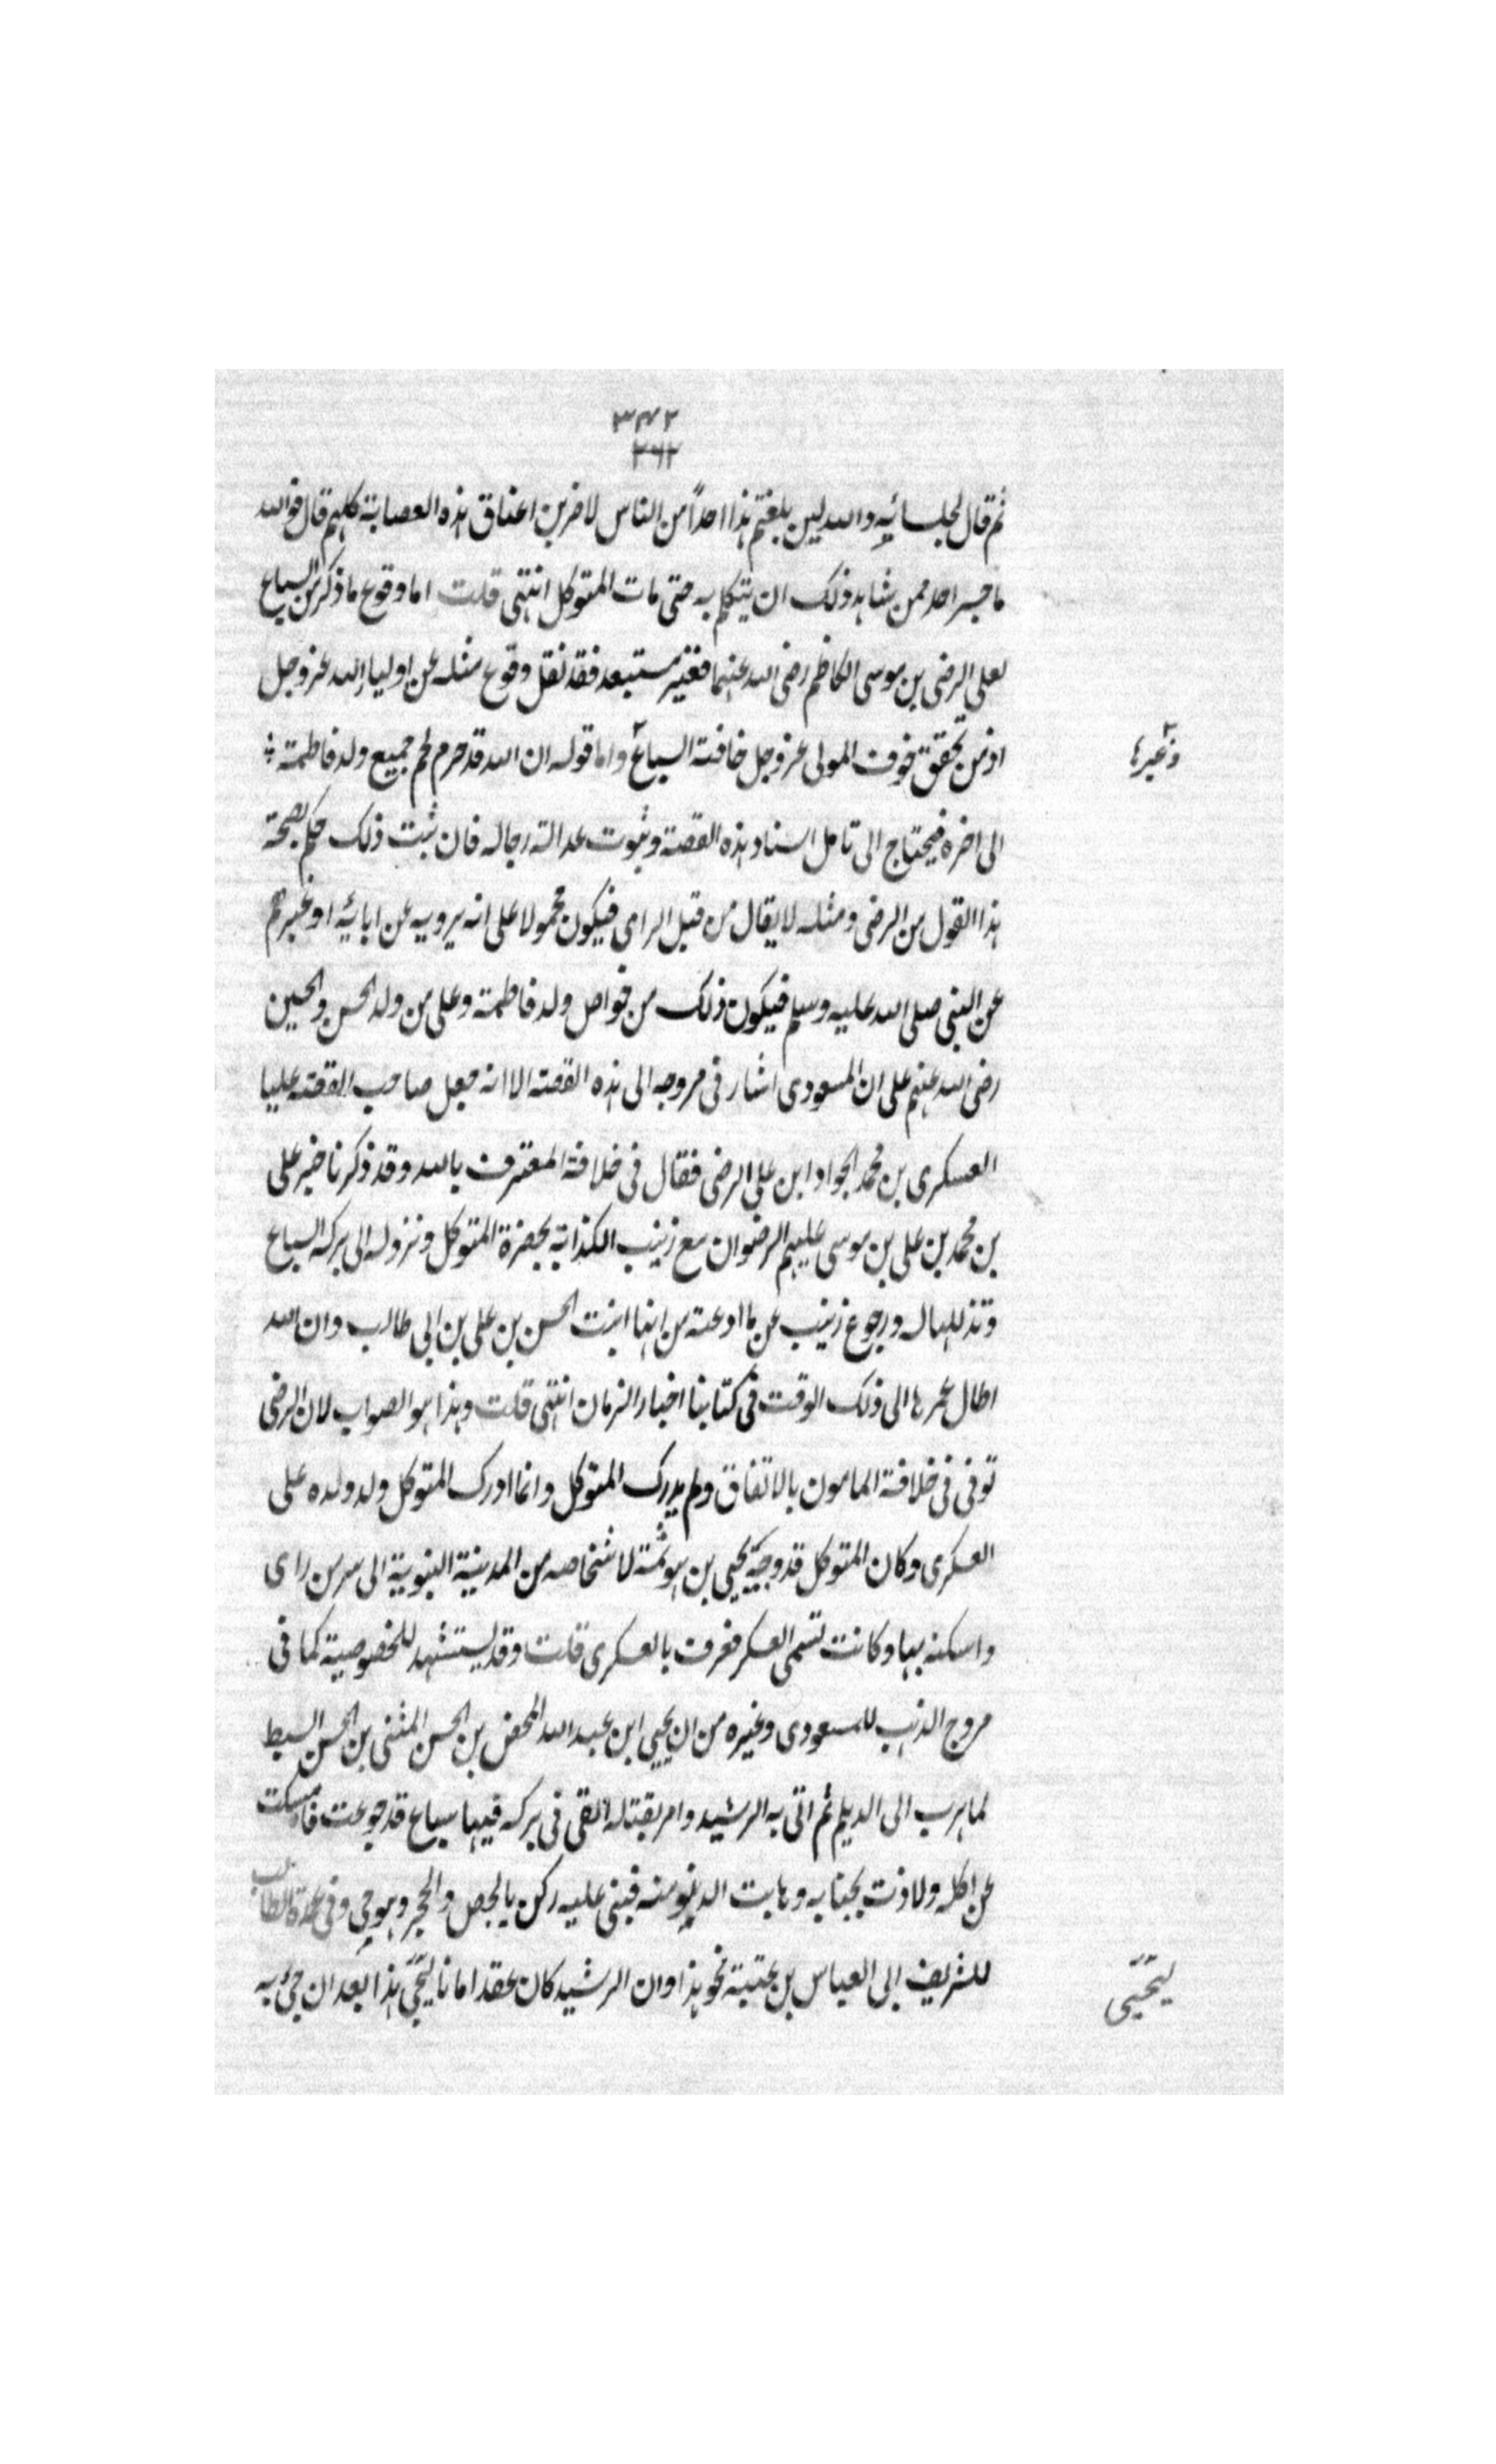 ٣٤٢
٣٦٢
ثم قال لجلسائه والله لين بلغتم هذا احداً من الناس لاضربن اعناق هذه العصابة كلهم قال فوالله
ما جسر احد ممن شاهد ذلك ان يتكلم به حتى مات المتوكل انتهى قلت اما وقوع ما ذكر من السباع
لعلى الرضى بن موسى الكاظم رضى الله عنهما فغير مستبعد فقد نقل وقوع مثله عن اولياء الله عز وجل
اذ من تحقق خوف المولى عز وجل خافته السباع واما قوله ان الله قد حرم لحم جميع ولد فاطمة
وغيرها
الى اخره فيحتاج الى تامل اسناد هذه القصة وثبوت عدالة رجاله فان ثبت ذلك حكم بصحة
هذا القول من الرضى ومثله لا يقال من قبل الراى فيكون محمولا على انه يرويه عن ابائه او غيرهم
عن النبى صلى الله عليه وسلم فيكون ذلك من خواص ولد فاطمة وعلى من ولد الحسن والحسين
رضى الله عنهم على ان المسعودى اشار فى مروجه الى هذه القصة الا انه جعل صاحب القصه عليا
العسكرى بن محمد الجواد ابن على الرضى فقال فى خلافة المعترف بالله وقد ذكرنا خبر على
بن محمد بن على بن موسى عليهم الرضوان مع زينب الكذابة بحضرة المتوكل ونزوله الى بركه السباع
وتذللها له ورجوع زينب عن ما ادعته من انها ابنت الحسن بن على بن ابى طالب وان الله
اطال عمرها الى ذلك الوقت فى كتابنا اخبار الزمان انتهى قلت وهذا هو الصواب لان الرضى
توفى فى خلافة المامون بالاتفاق ولم يدرك المتوكل وانما ادرك المتوكل ولد ولده على
العسكرى وكان المتوكل قد وجه يحيى بن هرثمة لاشخاصه من المدينة النبوية الى سر من راى
واسكنه بها وكانت تسمى العسكر فعرف بالعسكرى قلت وقد يستشهد للخصوصية كما فى
مروج الذهب للمسعودى وغيره من ان يحيى ابن عبد الله المحض بن الحسن المثنى بن الحسن السبط
لما هرب الى الديلم ثم اتى به الرشيد وامر بقتله القى فى بركه فيها سباع قد جوعت فامسكت
عن اكله ولاذت بجنابه وهابت الدنو منه فبنى عليه ركن بالجص والحجر وهو حى وفى عمدة الطالب
للشريف ابى العباس بن عتبة نحو هذا وان الرشيد كان عقد امانا ليحيى هذا بعد ان جئ به
ليحيى